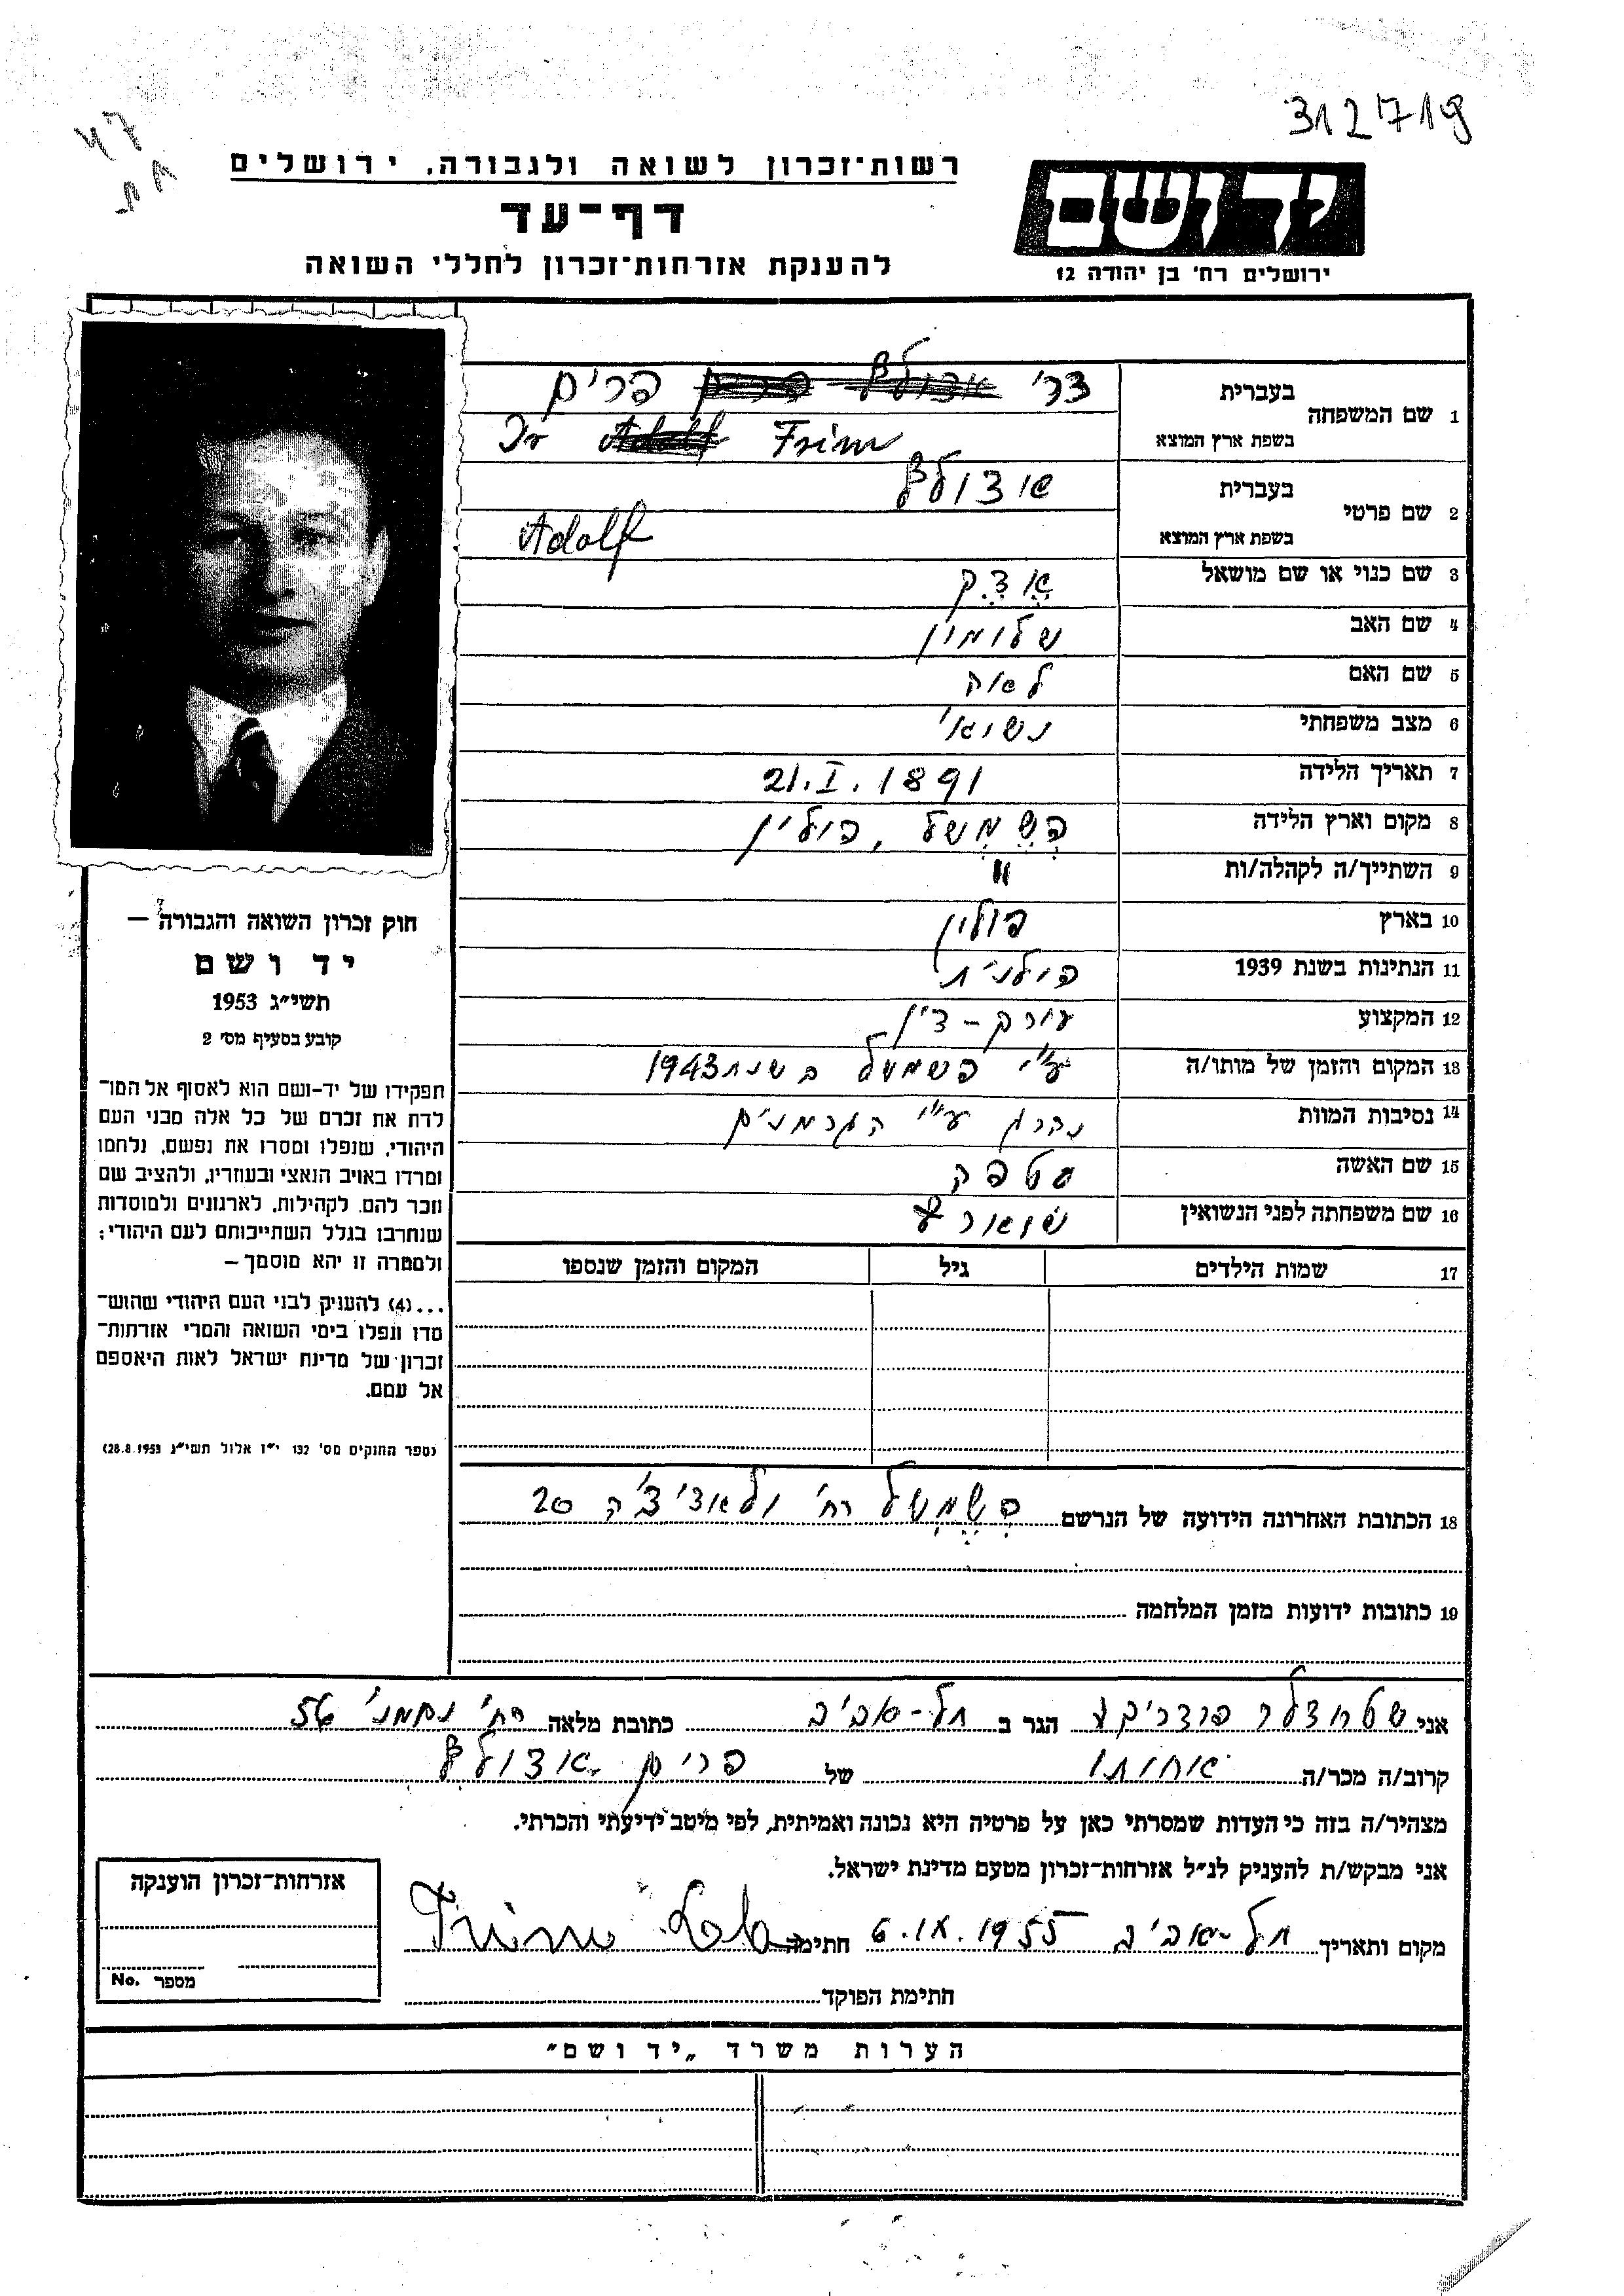 312719
47
רשות־זכרון לשואה ולגבורה, ירושלים
יד ושם
דף־עד
להענקת אזרחות־זכרון לחללי השואה
ירושלים רח' בן יהודה 12
1 שם המשפחה בעברית דר' פרים
בשפת ארץ המוצא Dr Frim
2 שם פרטי בעברית אדולף
בשפת ארץ המוצא Adolf
3 שם כנוי או שם מושאל אָדֶק
4 שם האב שלומון
5 שם האם לאה
6 מצב משפחתי נשואי
7 תאריך הלידה 21.I.1891
8 מקום וארץ הלידה פשמשל, פולין
9 השתייך/ה לקהלה/ות "
10 בארץ פולין
11 הנתינות בשנת 1939 פולנית
12 המקצוע עורק-דין
13 המקום והזמן של מותו/ה ע"י בשנת 1943
14 נסיבות המוות נהרג ע"י הגרמנים
15 שם האשה סטפה
16 שם משפחתה לפני הנשואין
17 שמות הילדים גיל המקום והזמן שנספו
18 הכתובת האחרונה הידועה של הנרשם פשמשל רח' 20
19 כתובות ידועות מזמן המלחמה
חוק זכרון השואה והגבורה —
יד ושם
תשי״ג 1953
קובע בסעיף מס׳ 2
תפקידו של יד-ושם הוא לאסוף אל המו־
לדת את זכרם של כל אלה מבני העם
היהודי, שנפלו ומסרו את נפשם, נלחמו
ומרדו באויב הנאצי ובעוזריו, ולהציב שם
וזכר להם, לקהילות, לארגונים ולמוסדות
שנחרבו בגלל השתייכותם לעם היהודי;
ולמטרה זו יהא מוסמך —
...(4) להעניק לבני העם היהודי שהוש־
מדו ונפלו בימי השואה והמרי אזרחות־
זכרון של מדינת ישראל לאות היאספם
אל עמם.
(ספר החוקים מס' 132 י״ז אלול תשי״ג 28.8.1953)
אני שטרודלר פרדריקה הגר ב תל-אביב כתובת מלאה רח' נחמני 56
קרוב/ה מכר/ה אחותו של פרים אדולף
מצהיר/ה בזה כי העדות שמסרתי כאן על פרטיה היא נכונה ואמיתית, לפי מיטב ידיעתי והכרתי.
אני מבקש/ת להעניק לנ״ל אזרחות־זכרון מטעם מדינת ישראל.
מקום ותאריך תל-אביב 6.IX.1955 חתימה
חתימת הפוקד
אזרחות־זכרון הוענקה
מספר No.
הערות משרד „יד ושם״